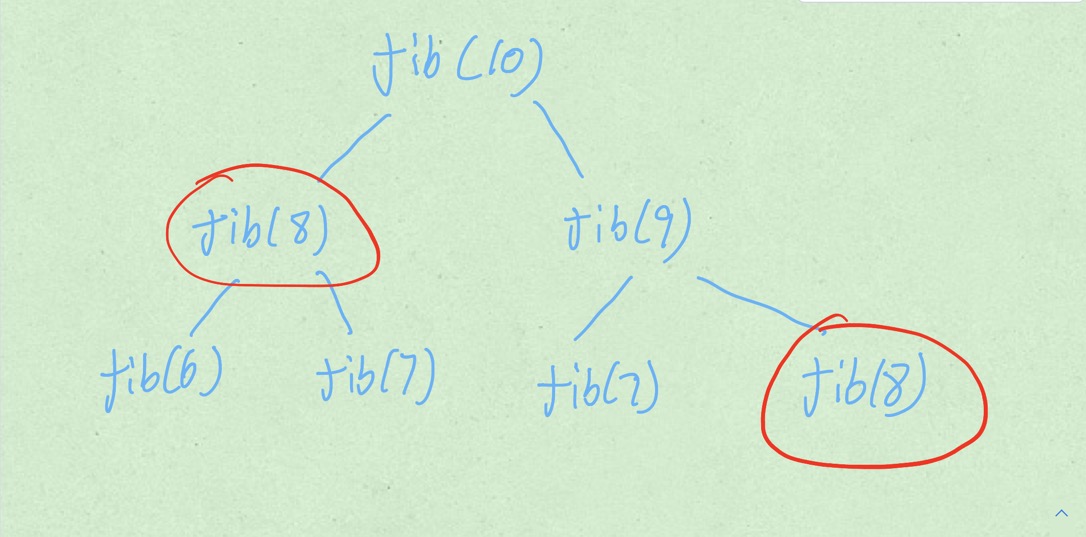 fib(10)
fib(8) fib(9)
fib(6) fib(7) fib(7) fib(8)